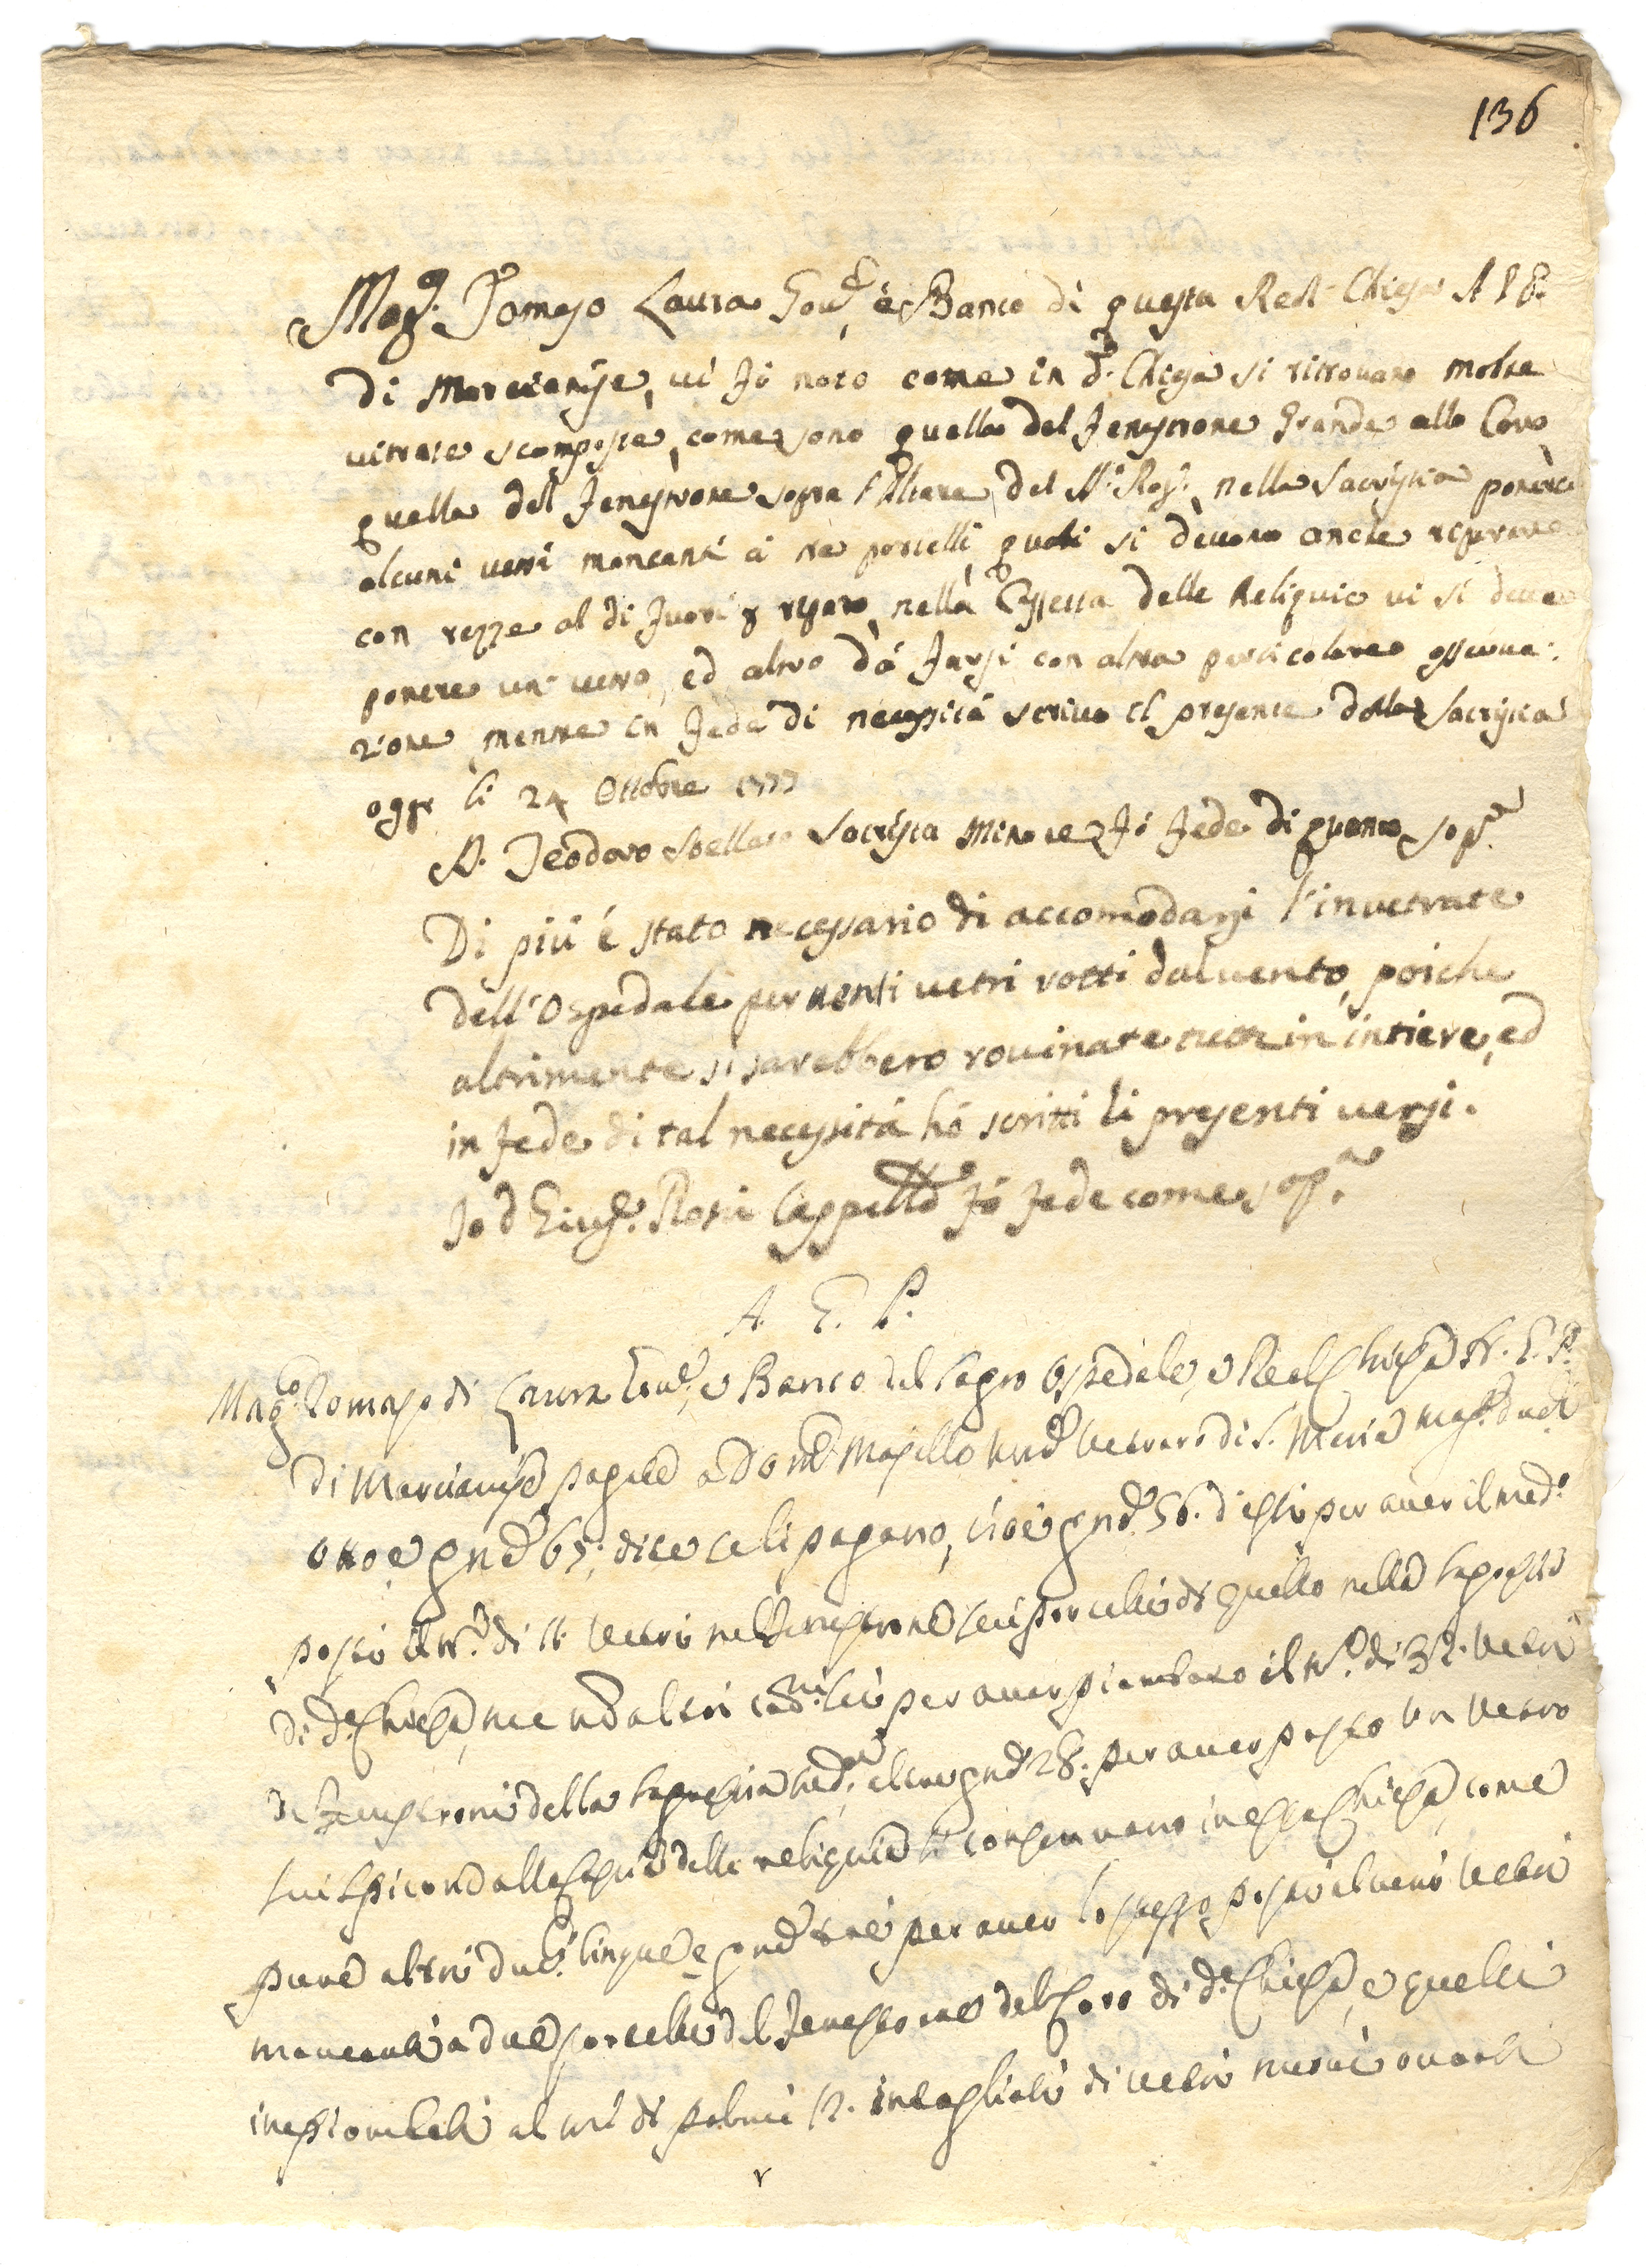 136
Mag.co Tomaso Laura Gov.e, e Banco di questa Real Chiesa A. G. P.
di Marcianise, vi fò noto come in d.a Chiesa si ritrovano molte
vitrate scomposte, come sono quella del fenestrone Grande allo Coro
quella del fenestrone sopra l'Altare del SS. Ros.o, nella Sacristia ponerce
alcuni vetri mancanti ai tre portelli, quali si devono anche riparare
con rezze al di fuori per riparo, nella Cassetta delle Reliquie vi si deve
ponere un vetro, ed altro da farsi con altra particolare osserva:
zione, mentre in fede di necessità scrivo il presente dalla Sacristia
oggi li 24 Ottobre 1777
D. Teodoro Sbellaro Sacrista Minore fò fede di quanto sop.a
Di più è stato necessario di accomodarsi l'invetrate
dell'Ospedale per venti vetri rotti dal vento, poiche
altrimente si sarebbero rovinate tutte in intiere, ed
in fede di tal necessità hò scritti li presenti versi.
Io d Gius.e Rossi Cappell.o fò fede come sop.a
A. G. P.
Mag.co Tomaso di Laura Gov.e, e Banco del Sagro Ospedale, e Real Chiesa A. G. P.
di Marcianise pagate a Dom.co Masillo Vetraro di S. Maria Mag.e ducati
otto e gna 65; dite se li pagano, cioè gna 56. d'essi per aver il med.o
posti il n.o di 11 vetri nel fenestrone, e portelli di quello nella Sagrestia
di d.a Chiesa, altri per aver piombato il n.o di 32. vetri
de fenestroni della Sagrestia med.a, altre gna 28. per aver posto un vetro
delle reliquie si conservano in essa Chiesa, come
pure altri duc.i cinque, e gna tre per aver lo stesso posti alcuni vetri
mancanti a due portelli del fenestrone del Coro di d.a Chiesa, e quelli
impiombati al n.o di palmi 12. intagliati di vetri ovati